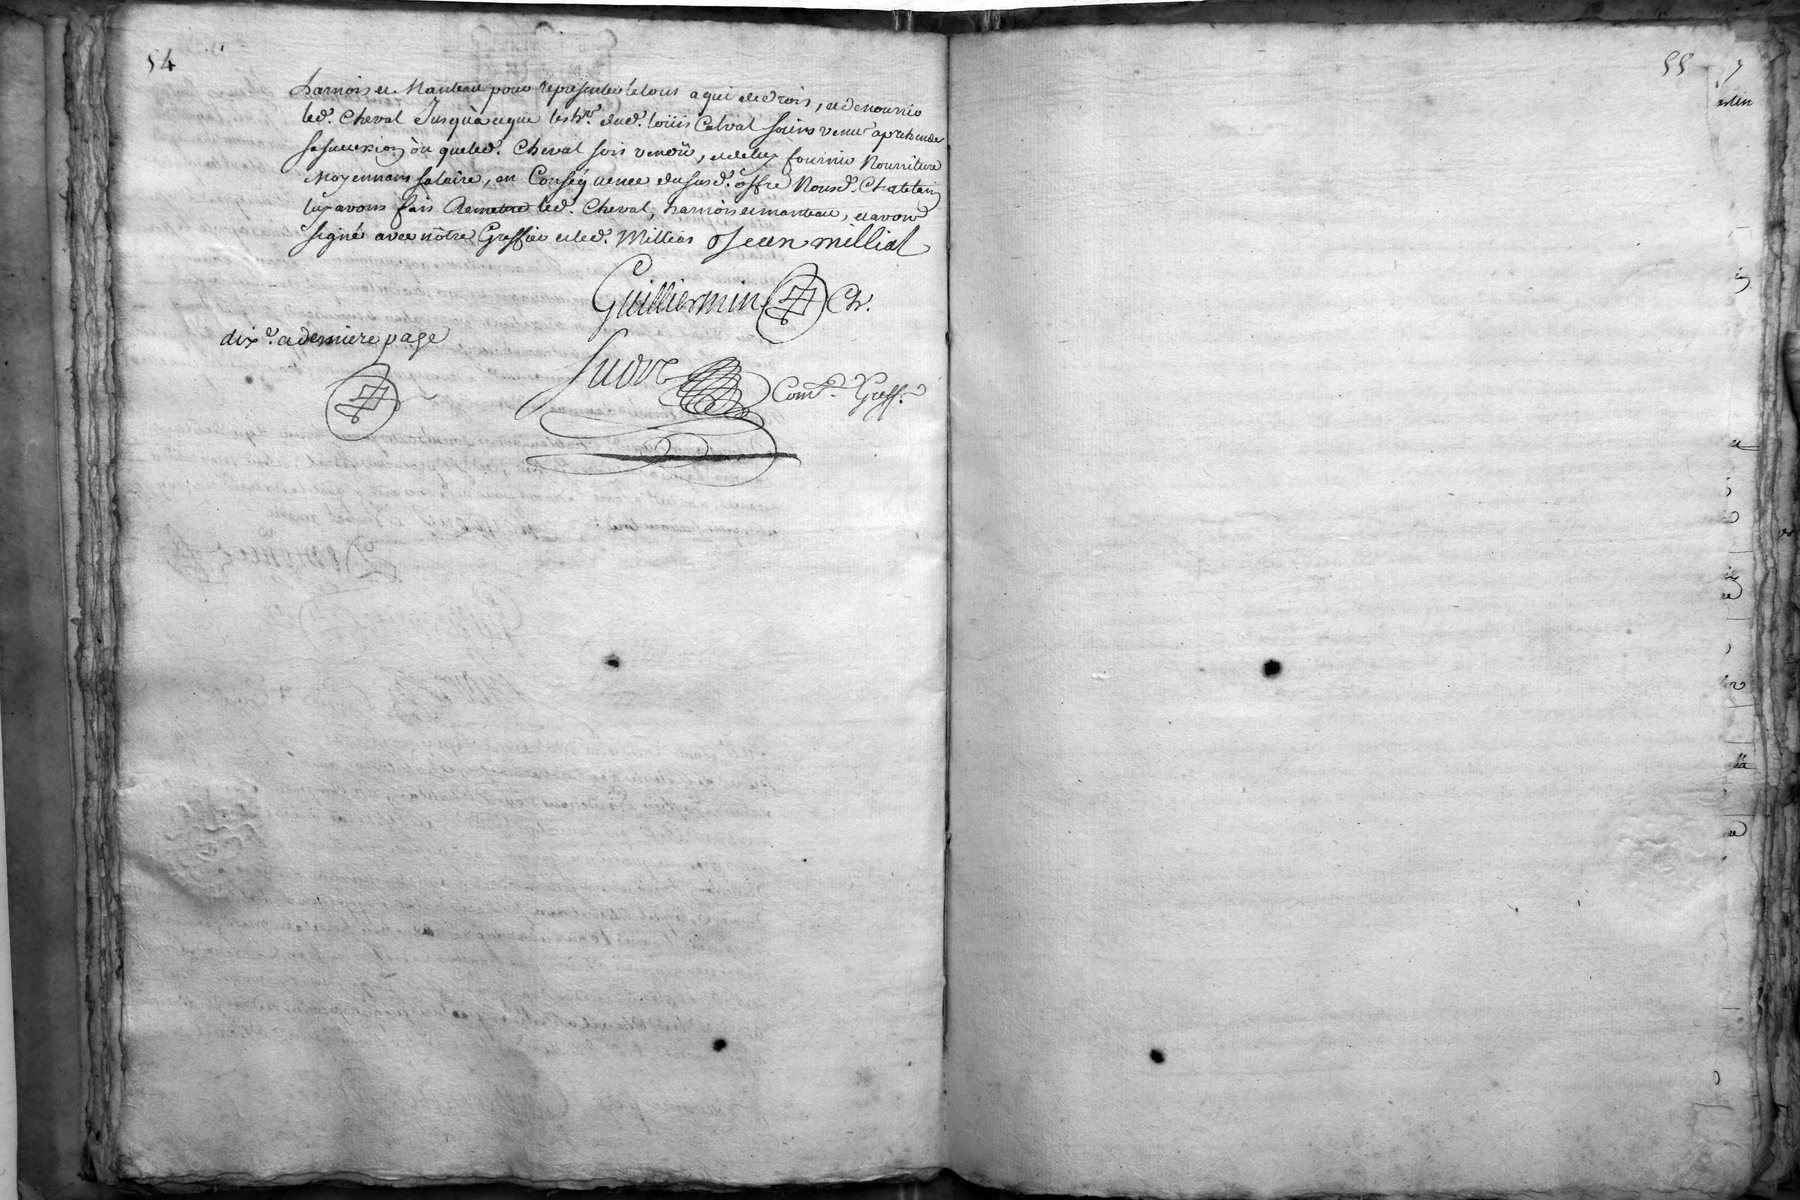 54
harnois et Manteau pour representer le tout a qui de drois, et de nourrir
led. Cheval Jusquà ce que les hrs. dud. Loüis Calval soins venus aprehender
sa succession ou que led. Cheval sois vendu, et de luy fournir Nourriture
Moyennans salaire, en Conséquence du susd. offre Nousd. Chatelain
luy avons fais Remettre led. Cheval, harnois et manteau, et avons
signé avec nôtre Greffier et led. Millias Jean millial
Guilliermin Ch.
dixe. a derniere page
Suove Comis. Greffr.
55